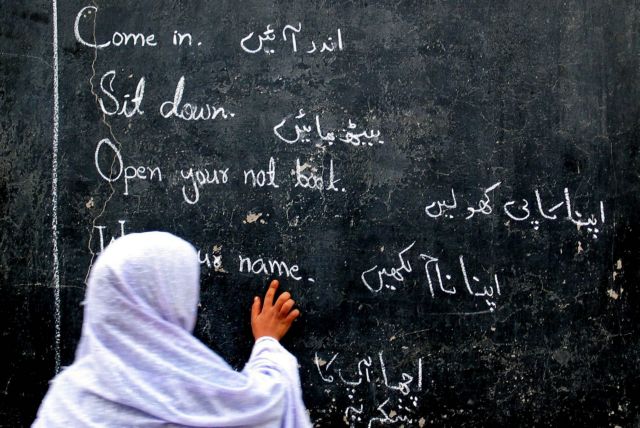 Come in. اندر آئیں
Sit down. بیٹھ جائیں
Open your not book.
اپنا کاپی کھولیں
name. اپنا نام لکھیں
اچھا آپ کا
شکریہ